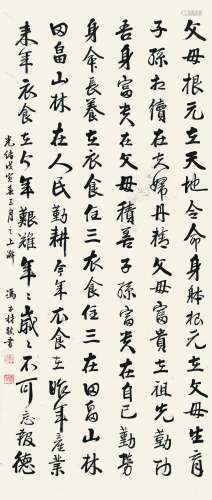 父母根元在天地令命身躰根元在父母生育
子孫相續在夫婦丹精父母富貴在祖先勤功
吾身富貴在父母積善子孫富貴在自己勤勞
身命長養在衣食住三衣食住三在田畠山林
田畠山林在人民勤耕今年衣食在昨年產業
来年衣食在今年艱難年〻歲〻不可忘報德
光緒戊寅春三月之上澣 馮子材敬書